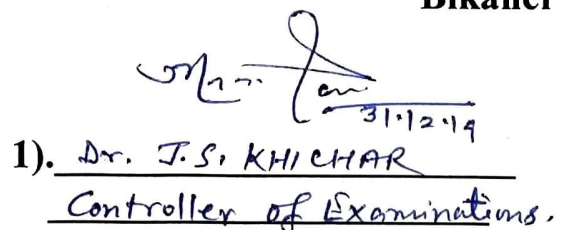 31.12.19
1). Dr. J.S. KHICHAR
Controller of Examinations.